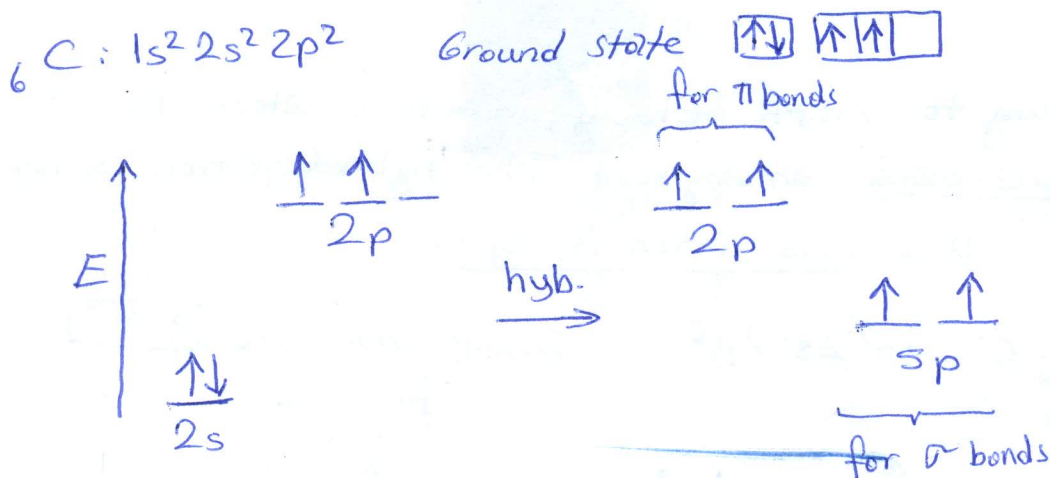 ₆C: 1s² 2s² 2p² Ground state ↑↓ ↑ ↑
for π bonds
↑ ↑ ↑ ↑
2p 2p
E
hyb.
↑ ↑
sp
↑↓
2s
for σ bonds